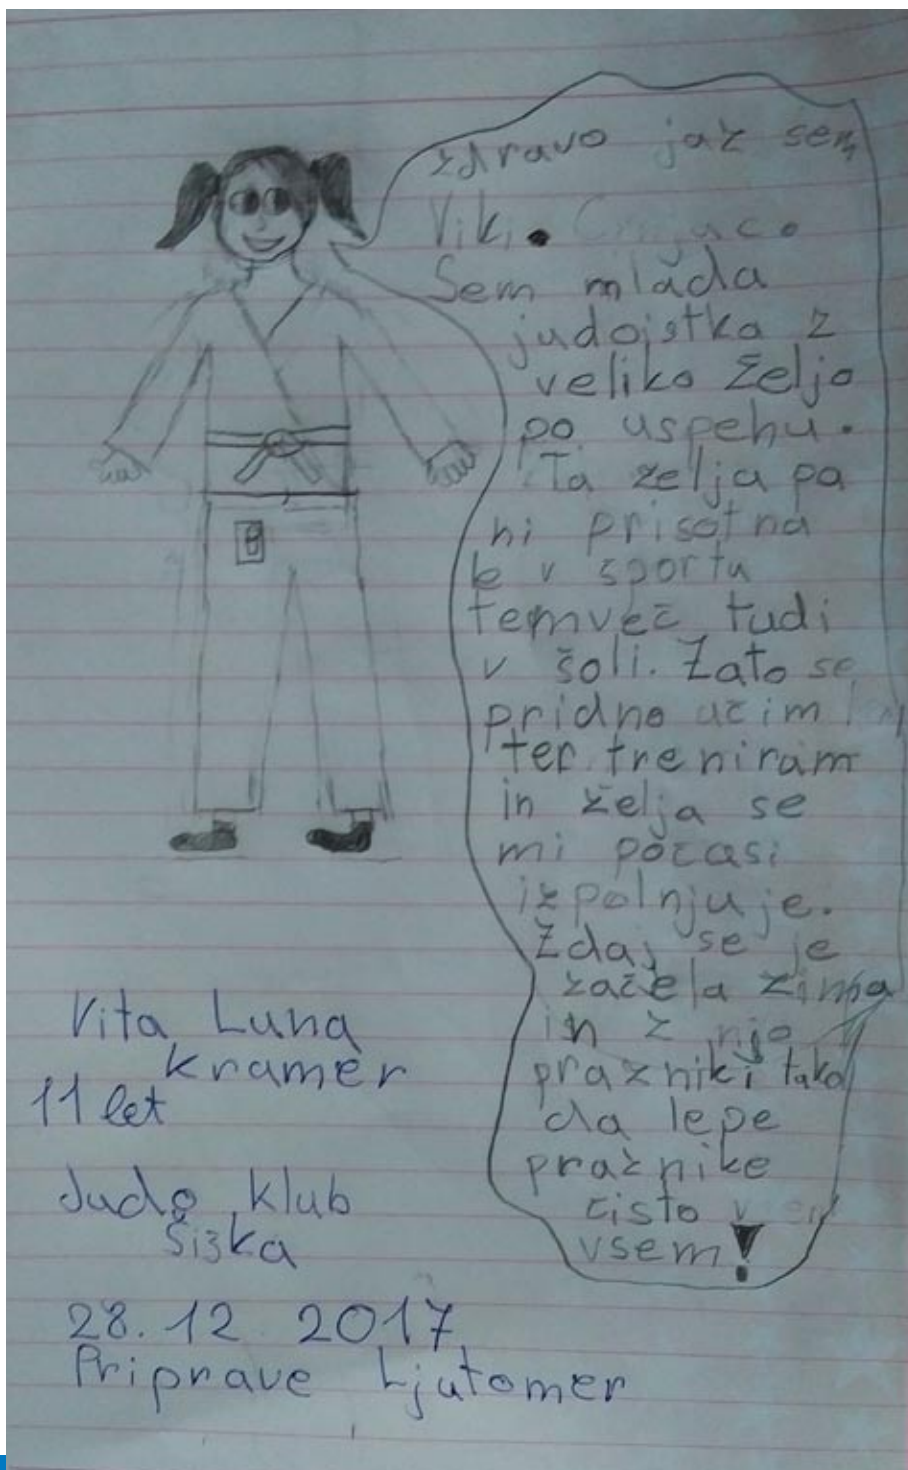 zdravo jaz sem
Viki.
Sem mlada
judoistka z
veliko željo
po uspehu.
Ta zelja pa
ni prisotna
le v sportu
temveč tudi
v šoli. Zato se
pridno učim
ter treniram
in želja se
mi počasi
izpolnjuje.
Zdaj se je
začela zima
in z njo
prazniki tako
da lepe
praznike
čisto
vsem!
Vita Luna
Kramer
11 let
Judo klub
Šiška
28.12 2017
Priprave Ljutomer